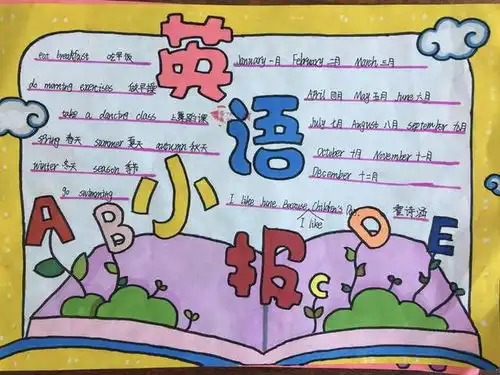 英语小报
eat breakfast 吃早饭
do morning exercises 做早操
take a dancing class 上舞蹈课
spring 春天 summer 夏天 autumn 秋天
winter 冬天 season 季节
go swimming
January 一月 February 二月 March 三月
April 四月 May 五月 June 六月
July 七月 August 八月 september 九月
October 十月 November 十一月
December 十二月
I like June. Because, Children's Day.
I like
A B C D E